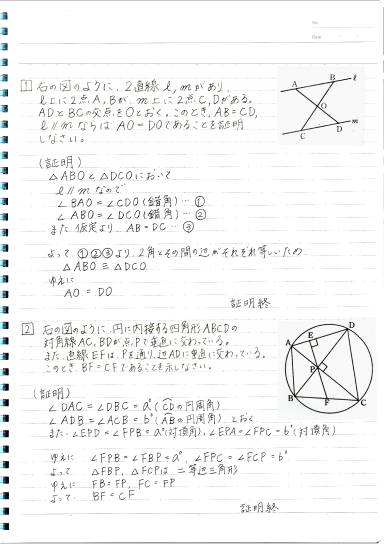 No.
Date
1 右の図のように、2直線 l, m があり、
l 上に2点 A, B が、m 上に2点 C, D がある。
AD と BC の交点を O とおく。このとき、AB = CD,
l // m ならば AO = DO であることを証明
しなさい。
A B l
O
C D m
(証明)
△ABO と △DCO において
l // m なので
∠BAO = ∠CDO (錯角) … ①
∠ABO = ∠DCO (錯角) … ②
また 仮定より AB = DC … ③
よって ①②③より、2角とその間の辺がそれぞれ等しいため
△ABO ≡ △DCO
ゆえに
AO = DO
証明終
2 右の図のように、円に内接する四角形 ABCD の
対角線 AC, BD が点 P で垂直に交わっている。
また、直線 EF は、P を通り、辺 AD に垂直に交わっている。
このとき、BF = CF であることを示しなさい。
D
E
A
P
B F C
(証明)
∠DAC = ∠DBC = a° (CDの円周角)
∠ADB = ∠ACB = b° (ABの円周角) とおく
また ∠EPD = ∠FPB = a° (対頂角), ∠EPA = ∠FPC = b° (対頂角)
ゆえに ∠FPB = ∠FBP = a°, ∠FPC = ∠FCP = b°
よって △FBP, △FCP は 二等辺三角形
ゆえに FB = FP, FC = FP
よって BF = CF
証明終